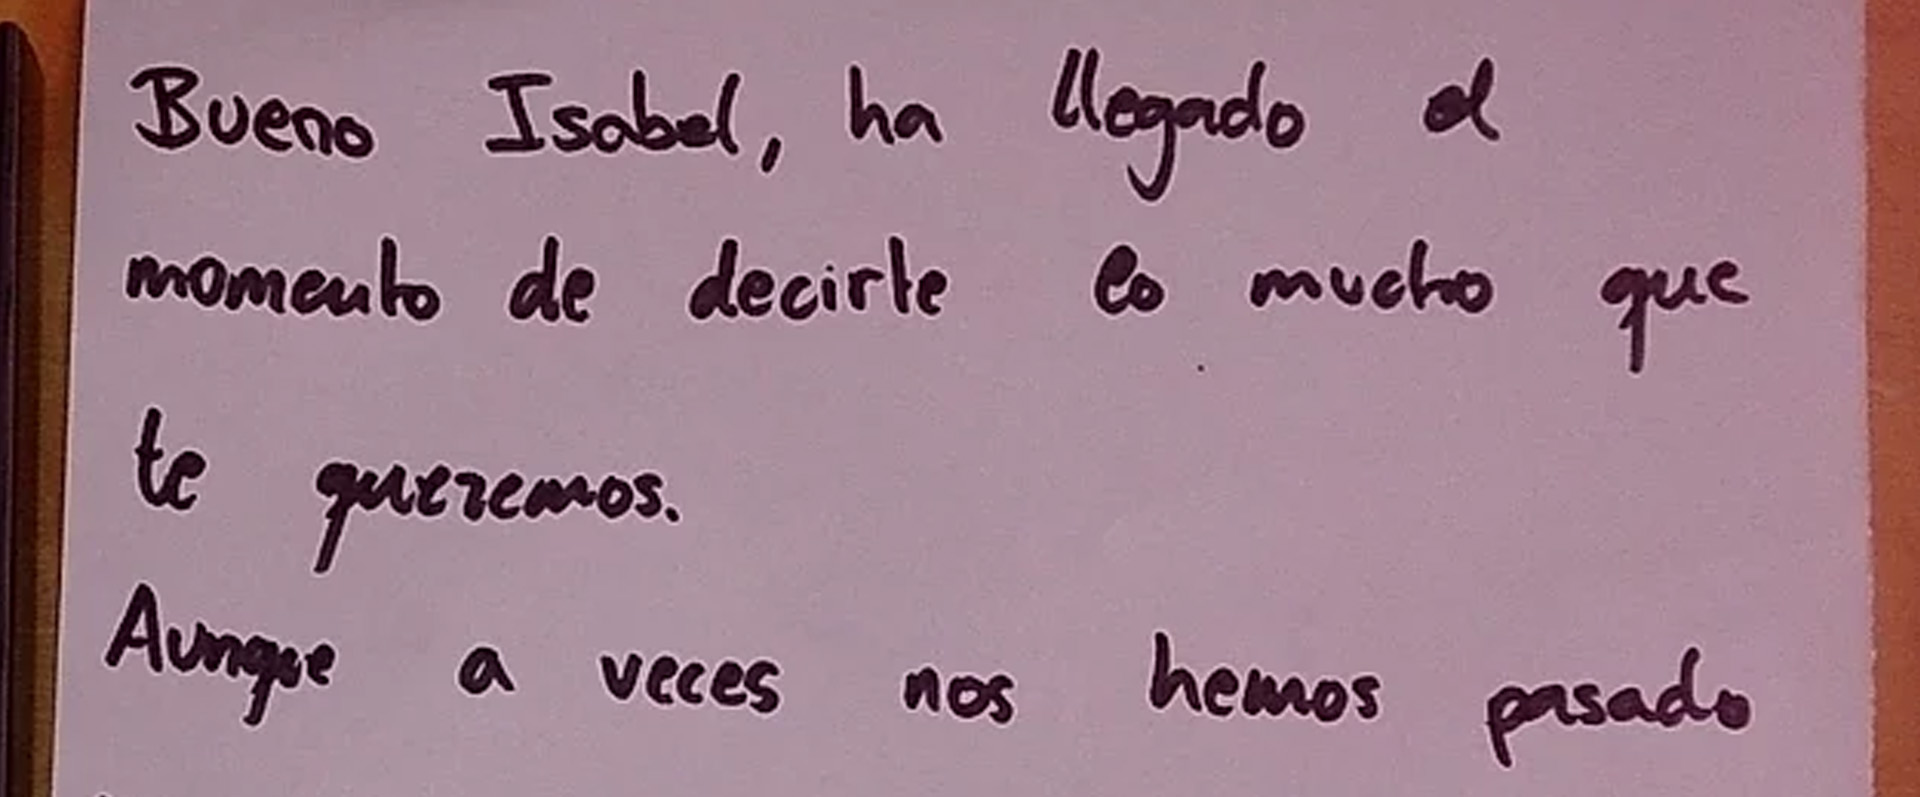 Bueno Isabel, ha llegado el
momento de decirte lo mucho que
te queremos.
Aunque a veces nos hemos pasado